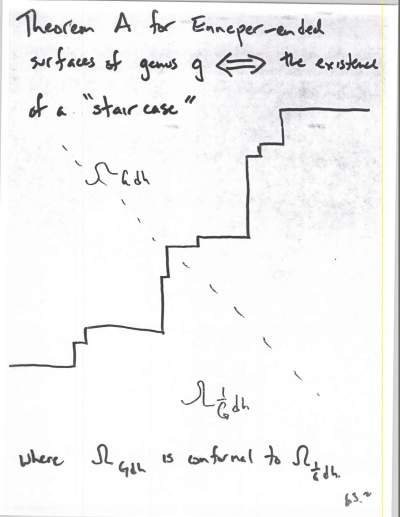 Theorem A for Enneper-ended
surfaces of genus g ⟺ the existence
of a "staircase"
Ω G dh
Ω 1/G dh
where Ω G dh is conformal to Ω 1/G dh.